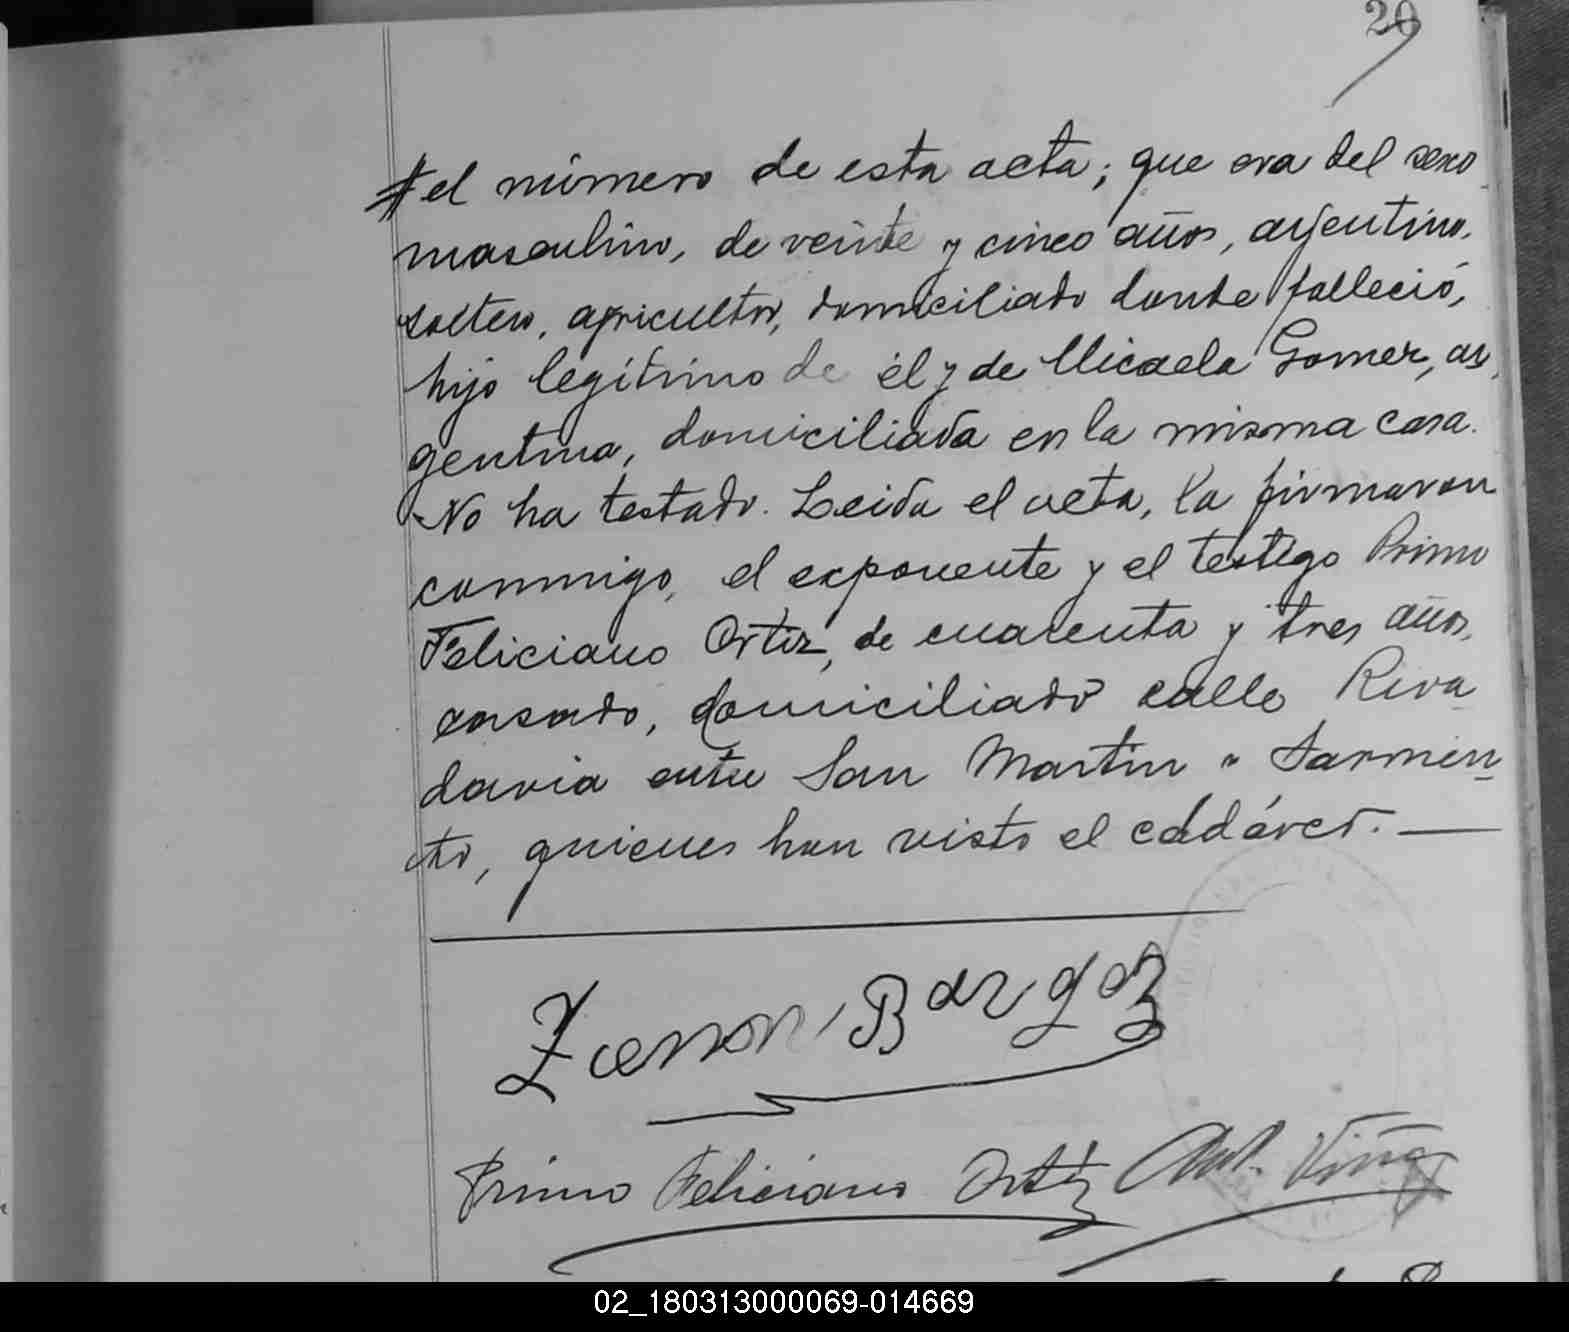 20
el número de esta acta; que era del sexo
masculino, de veinte y cinco años, arjentino,
soltero, agricultor, domiciliado donde falleció,
hijo legítimo de él y de Micaela Gomez, ar,
gentina, domiciliada en la misma casa.
No ha testado. Leida el acta, la firmaron
conmigo, el exponente y el testigo Primo
Feliciano Ortiz, de cuarenta y tres años,
casado, domiciliado calle Riva
davia entre San Martin y Sarmien
to, quienes han visto el cadáver.
Zenon Bargaz
Primo Feliciano Ortiz
02_180313000069-014669